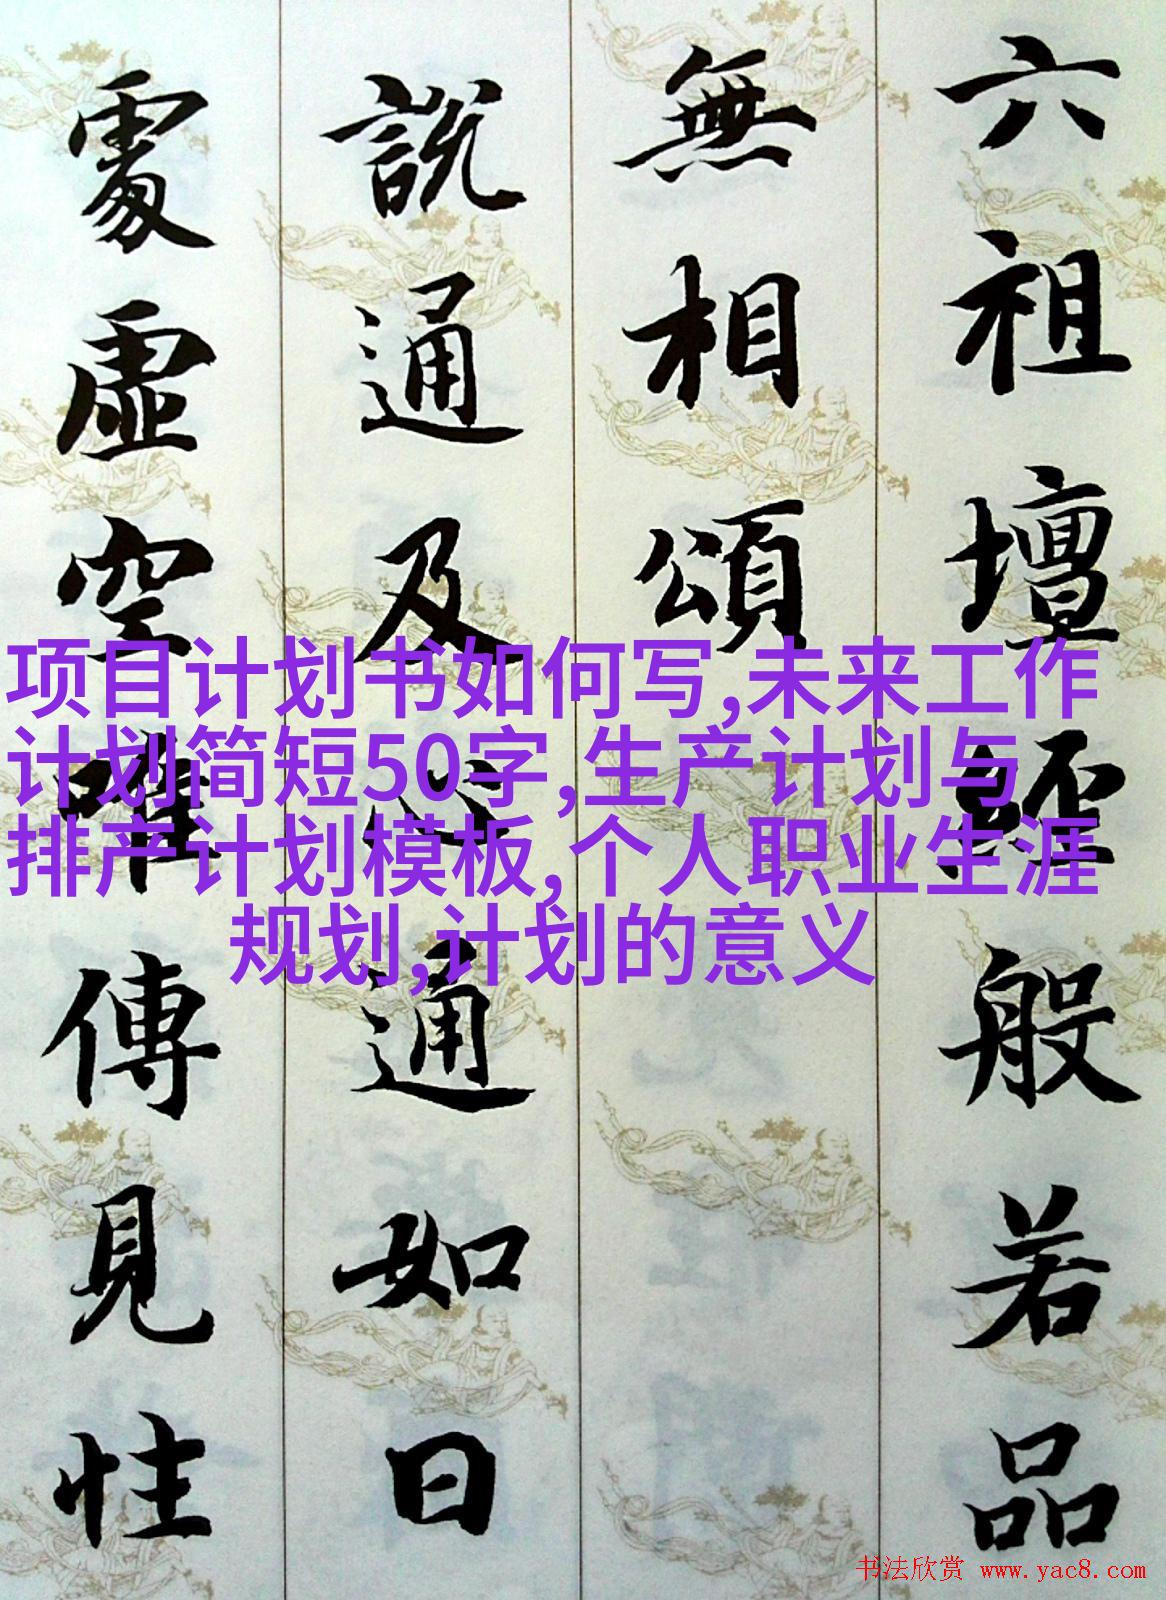 六祖壇經般若品
無相頌
說通及心通如日
處虛空唯傳見性
项目计划书如何写,未来工作
计划简短50字,生产计划与
排产计划模板,个人职业生涯
规划,计划的意义
书法欣赏 www.yac8.com